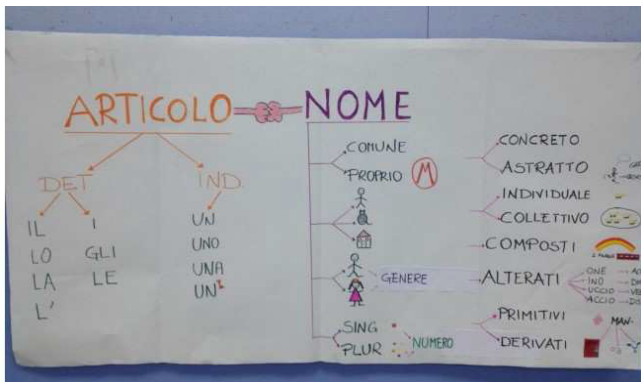 ARTICOLO NOME
DET IND.
IL I UN
LO GLI UNO
LA LE UNA
L' UN'
COMUNE
PROPRIO M
GENERE
SING
PLUR NUMERO
CONCRETO
ASTRATTO
INDIVIDUALE
COLLETTIVO
COMPOSTI
ALTERATI
ONE
INO
UCCIO
ACCIO
PRIMITIVI
DERIVATI
MAN